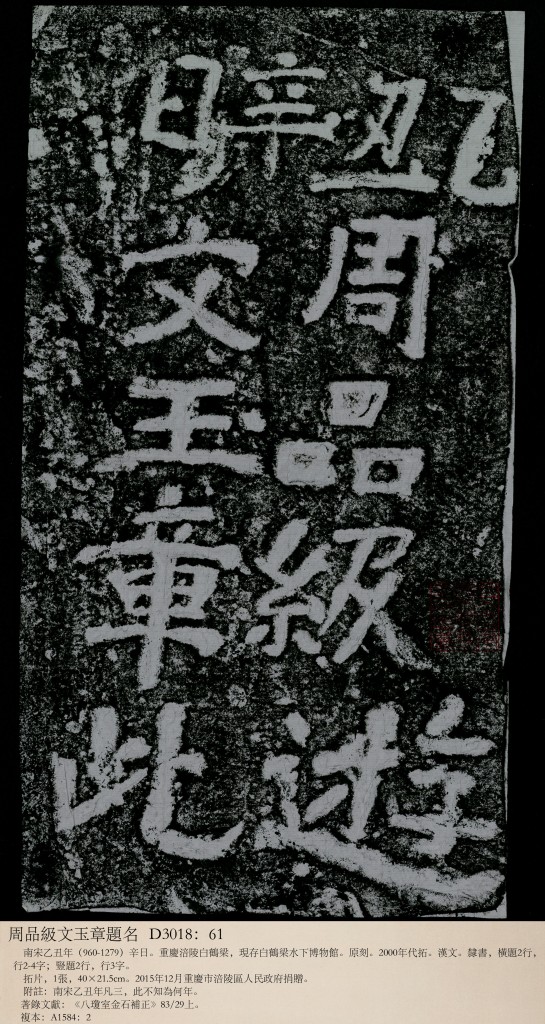 乙丑辛日
周品級
文玉章
遊此
周品級文玉章題名 D3018：61
南宋乙丑年（960-1279）辛日。重慶涪陵白鶴梁，現存白鶴梁水下博物館。原刻。2000年代拓。漢文。隸書，橫題2行，
行2-4字；豎題2行，行3字。
拓片，1張，40×21.5cm。2015年12月重慶市涪陵區人民政府捐贈。
附註：南宋乙丑年凡三，此不知為何年。
著錄文獻：《八瓊室金石補正》83/29上。
複本：A1584：2